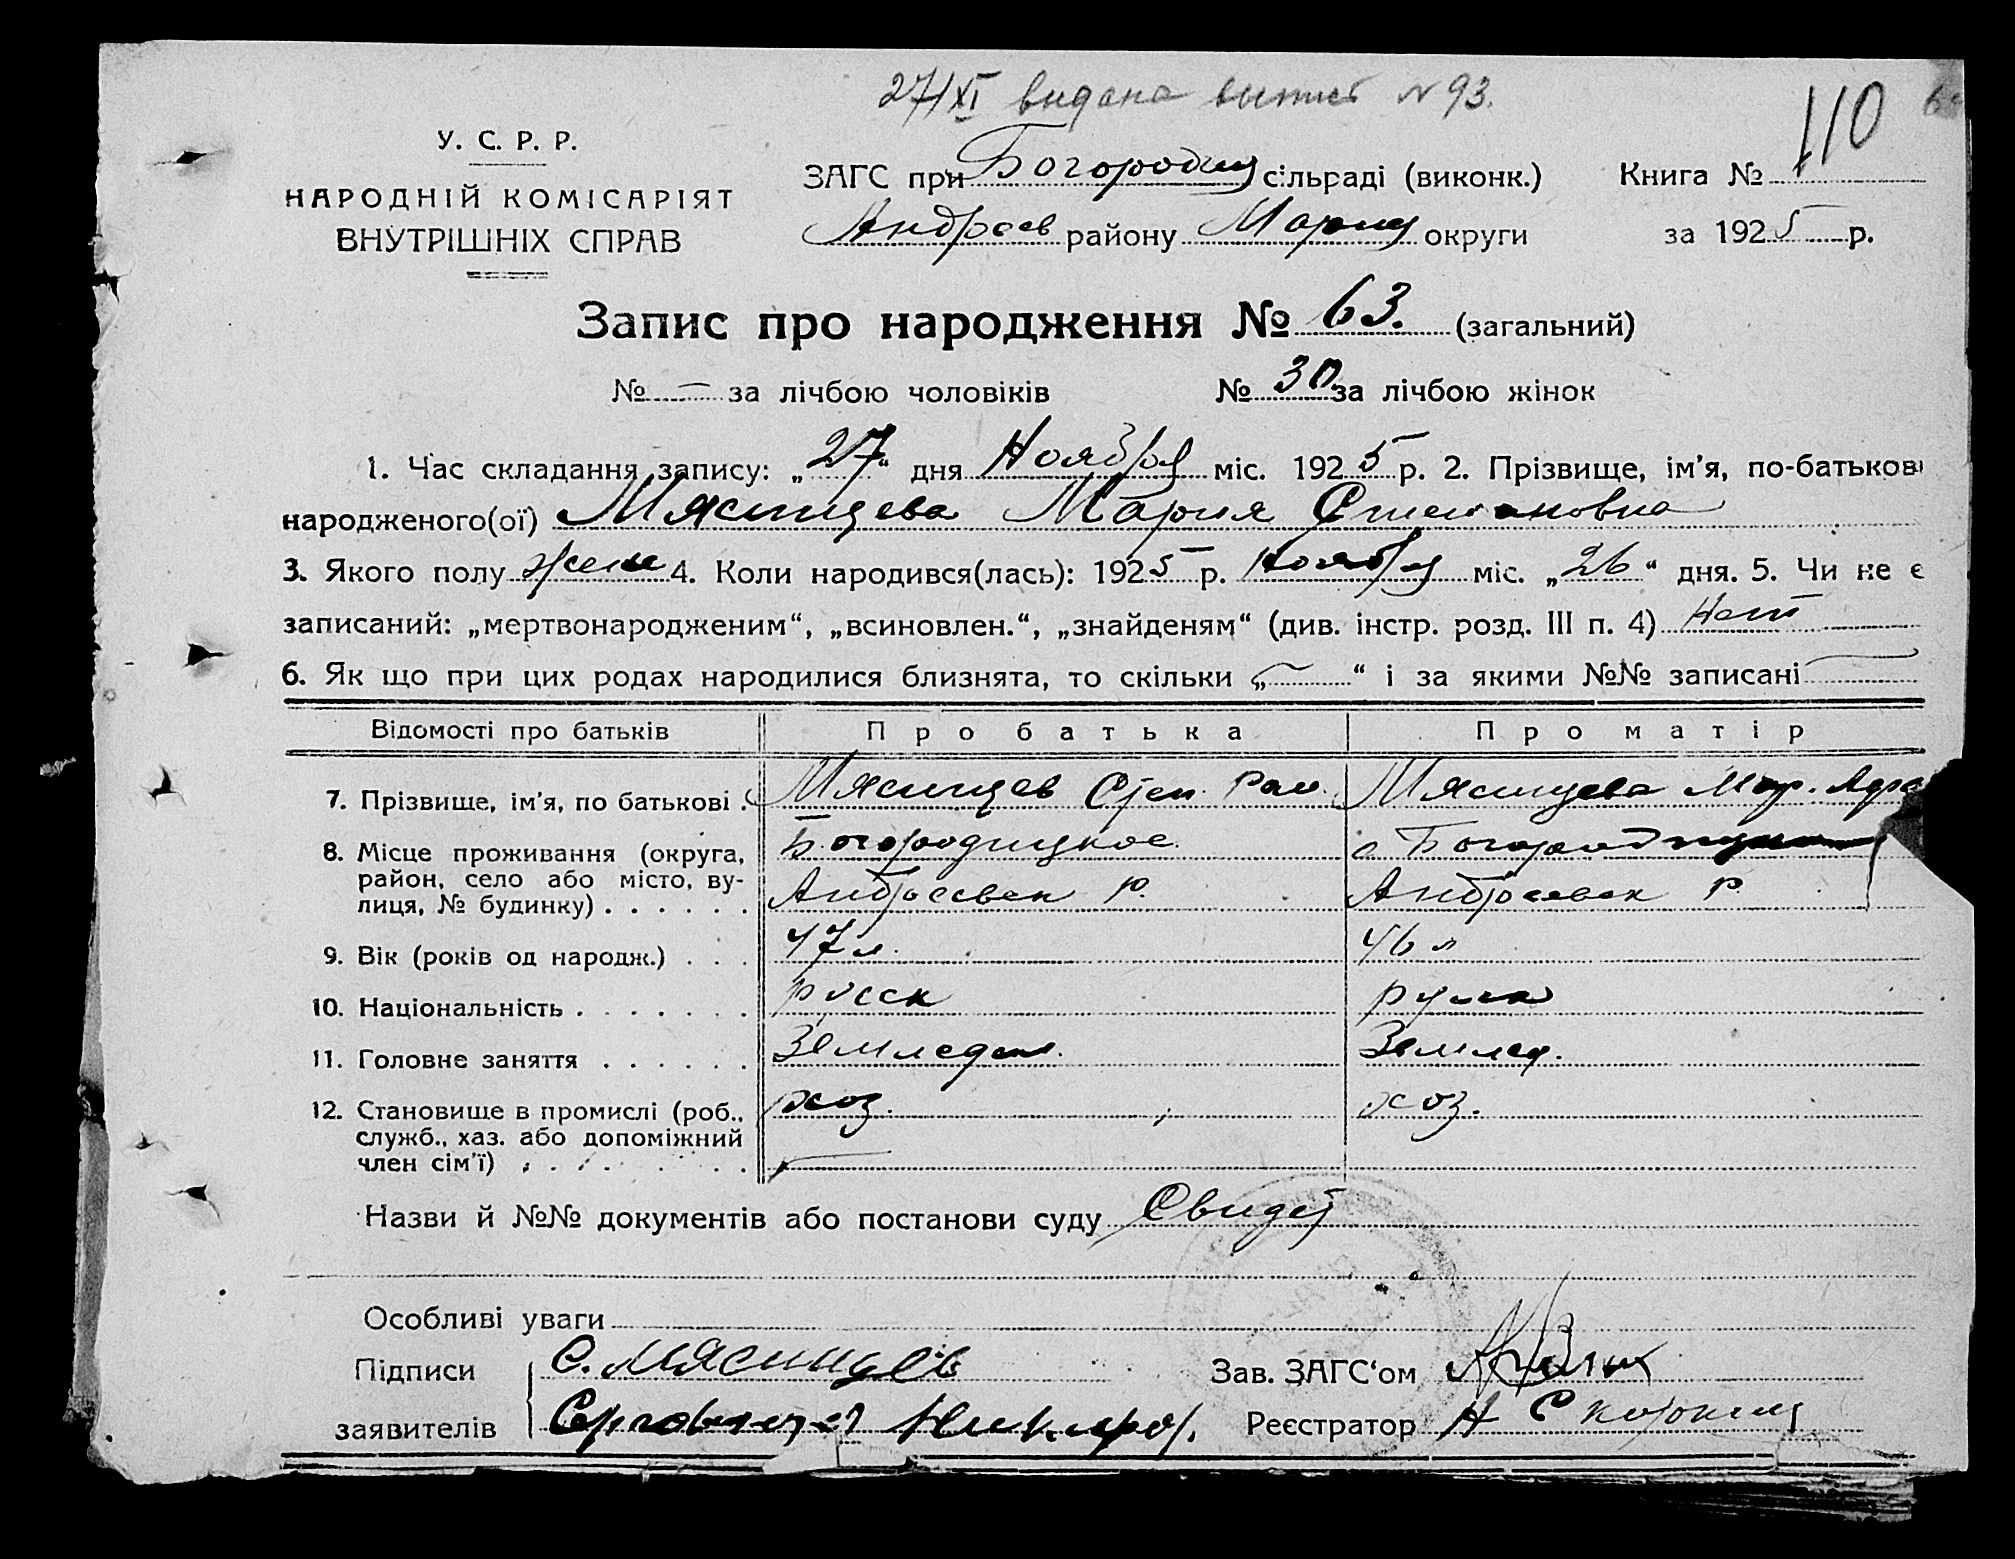 27/XI видана выпись N 93.
110
У. С. Р. Р.
НАРОДНІЙ КОМІСАРІЯТ
ВНУТРІШНІХ СПРАВ
ЗАГС при Богородиц сільраді (виконк.) Книга №
Андреев району Мариуп округи за 1925 р.
Запис про народження № 63. (загальний)
№ — за лічбою чоловіків № 30 за лічбою жінок
1. Час складання запису: „27“ дня Ноября міс. 1925 р. 2. Прізвище, ім'я, по-батькові
народженого(ої) Мясищева Мария Степановна
3. Якого полу жен 4. Коли народився(лась): 1925 р. Ноября міс. „26“ дня. 5. Чи не є
записаний: „мертвонародженим“, „всиновлен.“, „знайденям“ (див. інстр. розд. III п. 4) Нет
6. Як що при цих родах народилися близнята, то скільки „—“ і за якими №№ записані —
Відомості про батьків Про батька Про матір
7. Прізвище, ім'я, по батькові . Мясищев Степ. Мясищева Мар.
8. Місце проживання (округа, Богородицкое с Богородицкое
район, село або місто, ву- Андреевск р. Андреевск р.
лиця, № будинку) . . . . . .
9. Вік (років од народж.) . . . 47 л. 46 л
10. Національність . . . . . . . русск русск
11. Головне заняття . . . . . . Земледел. Землед.
12. Становище в промислі (роб., хоз. хоз.
служб., хаз. або допоміжний
член сім'ї) . . . . . . . . —
Назви й №№ документів або постанови суду Свидет
Особливі уваги
Підписи С. Мясищев Зав. ЗАГС'ом
заявителів Реєстратор А